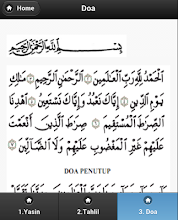 Home
Doa
بِسْمِ اللهِ الرَّحْمٰنِ الرَّحِيْمِ
اَلْحَمْدُ لِلّٰهِ رَبِّ الْعَالَمِيْنَ ۝ اَلرَّحْمٰنِ الرَّحِيْمِ ۝ مَالِكِ
يَوْمِ الدِّيْنِ ۝ إِيَّاكَ نَعْبُدُ وَإِيَّاكَ نَسْتَعِيْنُ ۝ اِهْدِنَا
الصِّرَاطَ الْمُسْتَقِيْمَ ۝ صِرَاطَ الَّذِيْنَ أَنْعَمْتَ
عَلَيْهِمْ غَيْرِ الْمَغْضُوْبِ عَلَيْهِمْ وَلَا الضَّالِّيْنَ
DOA PENUTUP
1.Yasin
2.Tahlil
3. Doa